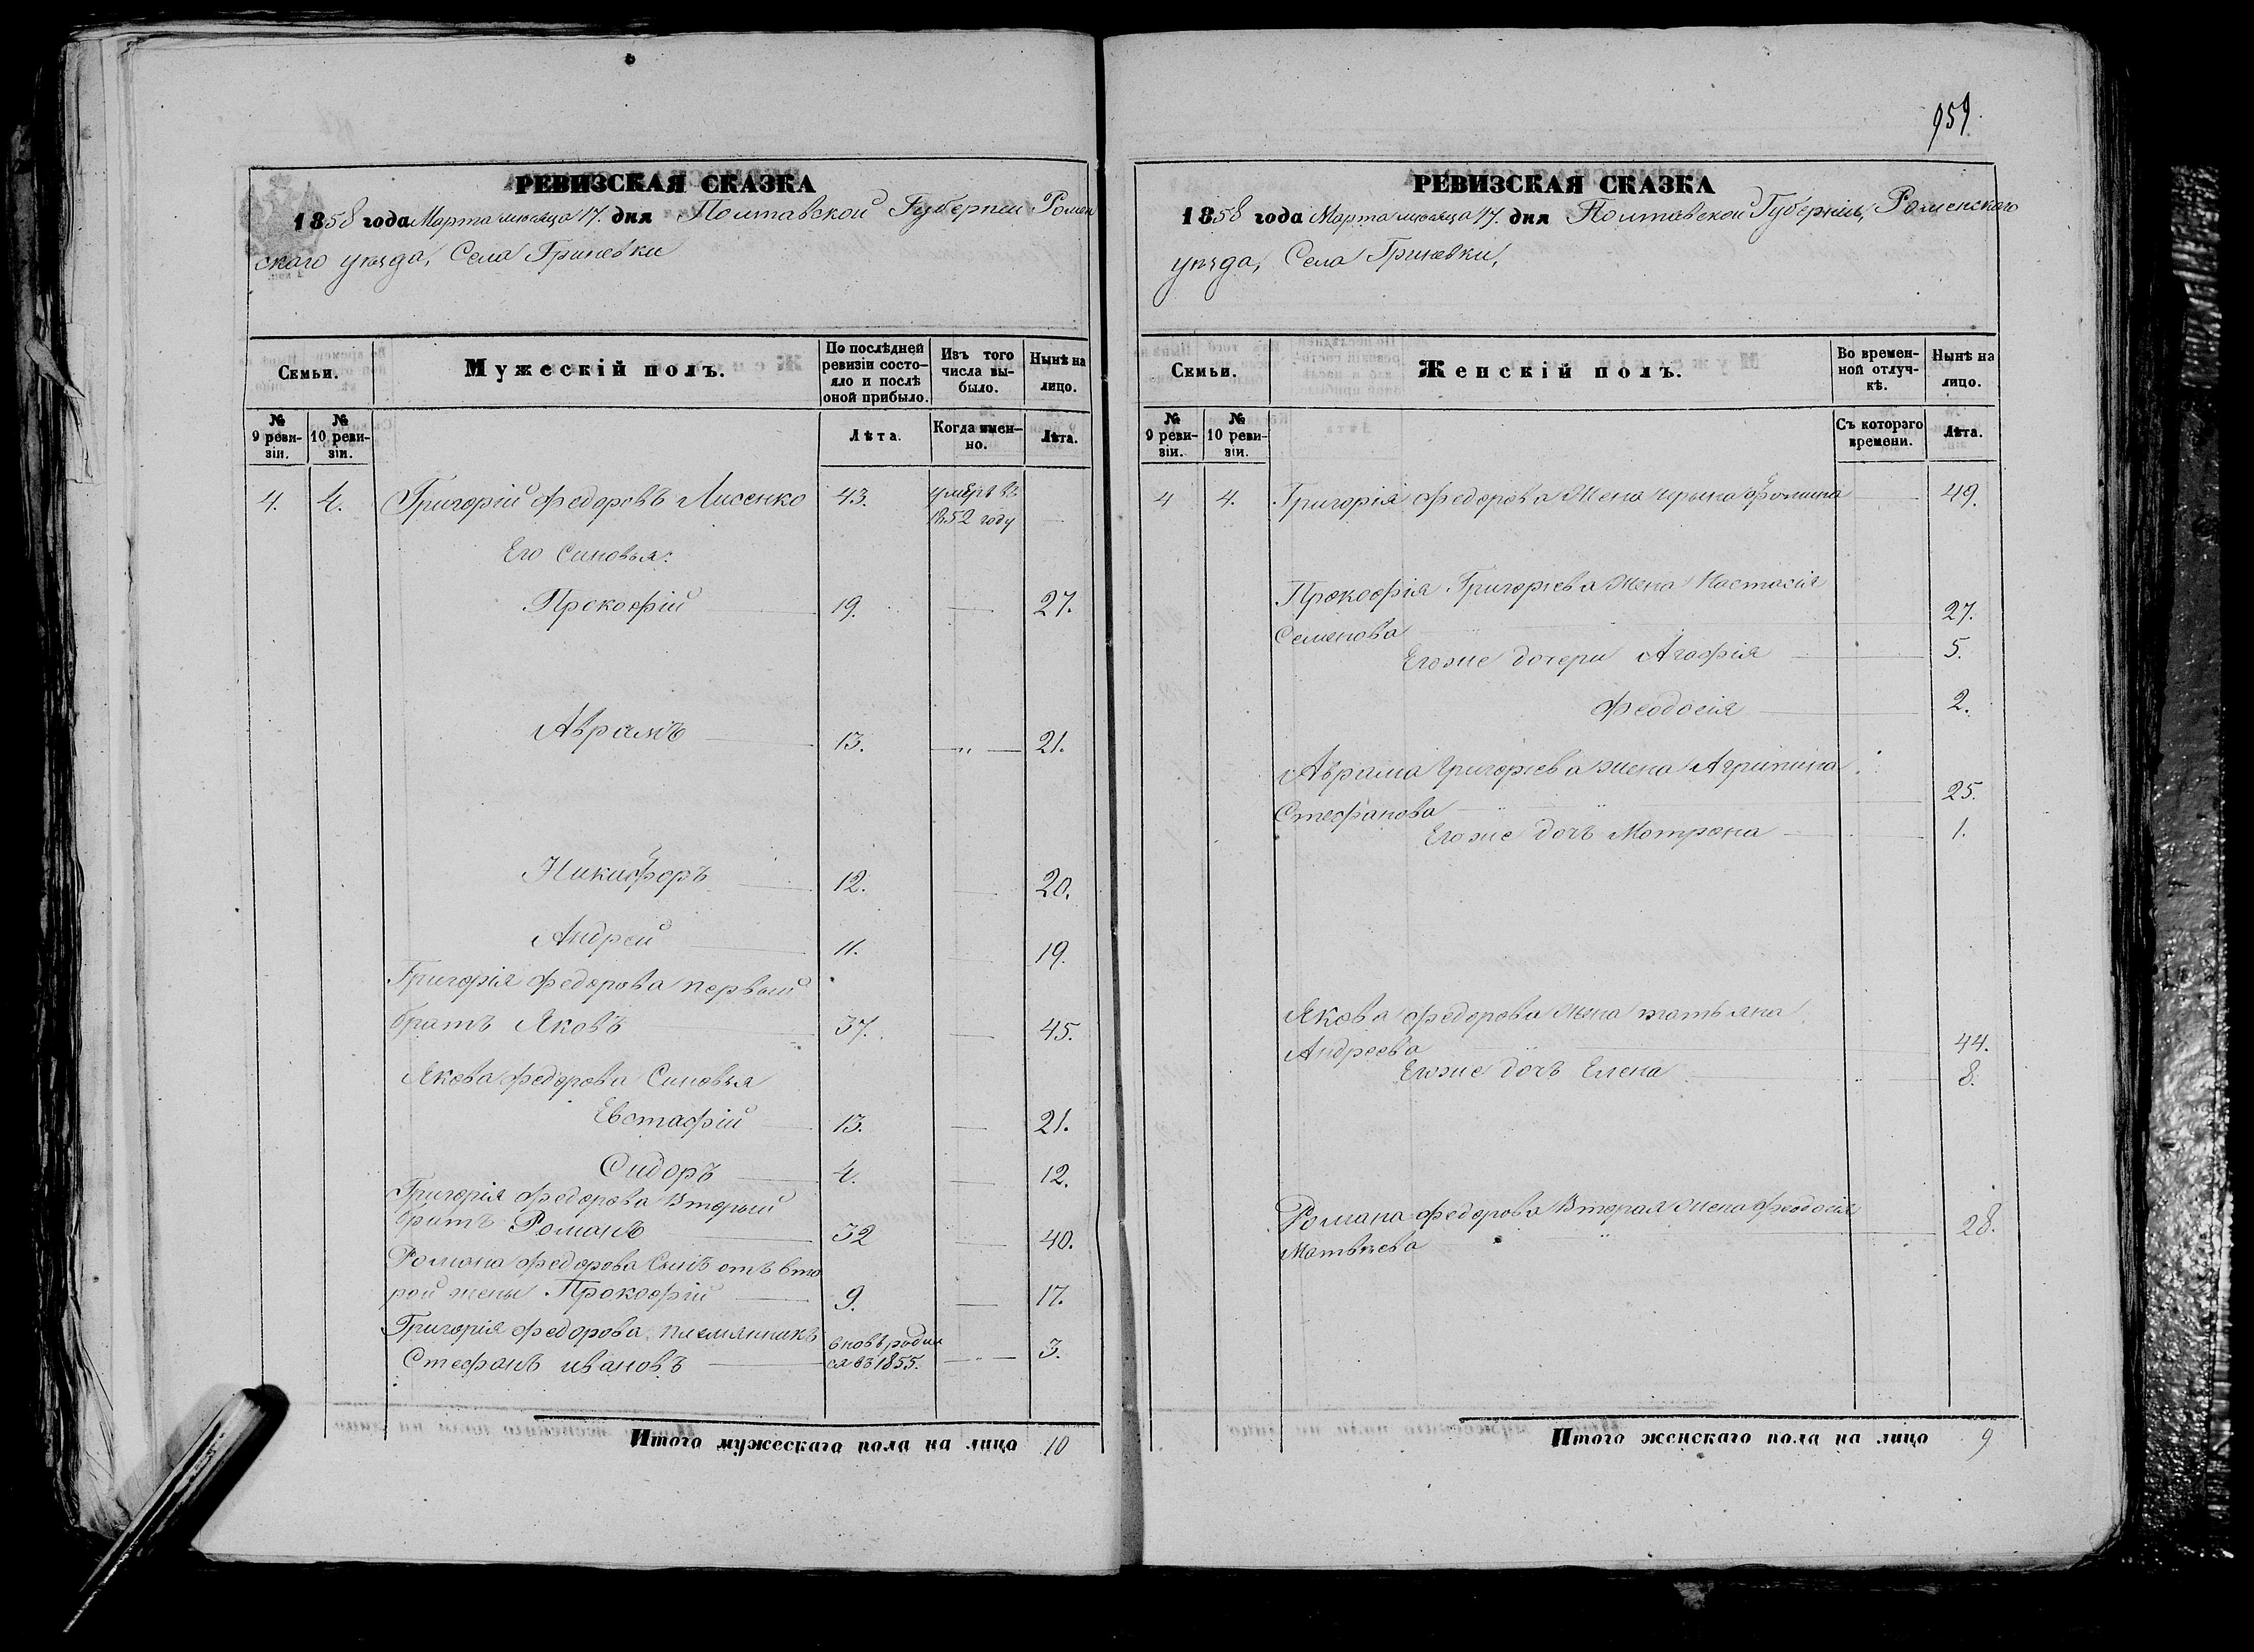 959.
РЕВИЗСКАЯ СКАЗКА
1858 года Марта месяца 17. дня Полтавской Губернии Ромен
скаго уѣзда, Села Гриневки
Семьи.
Мужескій полъ.
По послѣдней ревизіи состояло и послѣ оной прибыло.
Изъ того числа выбыло.
Нынѣ на лицо.
№ 9 ревизіи.
№ 10 ревизіи.
Лѣта.
Когда именно.
Лѣта.
4. 4. Григорій Федоровъ Лисенко 43. умеръ въ
1852 году
Его Синовья:
Прокофій 19. 27.
Аврамъ 13. 21.
Никифоръ 12. 20.
Андрей 11. 19.
Григорія Федорова первый
братъ Яковъ 37. 45.
Якова Федорова Синовья
Евстафій 13. 21.
Сидоръ 4. 12.
Григорія Федорова Вторый
братъ Романъ 32 40.
Романа Федорова Сынъ отъ вто
рой жены Прокофій 9. 17.
Григорія Федорова племянникъ вновь родил
Стефанъ Ивановъ ся въ 1855. 3.
Итого мужескаго пола на лицо 10
РЕВИЗСКАЯ СКАЗКА
1858 года Марта месяца 17. дня Полтавской Губерніи, Роменскаго
уѣзда, Села Гриневки,
Семьи.
Женскій полъ.
Во временной отлучкѣ.
Нынѣ на лицо.
№ 9 ревизіи.
№ 10 ревизіи.
Съ котораго времени.
Лѣта.
4 4. Григорія Федорова Жена Ирына Фомина 49.
Прокофія Григорьева жена Настасія
Семенова 27.
Егоже дочери Агафія 5.
Феодосія 2.
Аврама Григорьева жена Агрипина
Стефанова 25.
Егоже дочь Мотрона 1.
Якова Федорова жена татьяна
Андреева 44.
Егоже дочь Елена 8.
Романа Федорова Вторая жена Феодосія
Матвѣева 28.
Итого женскаго пола на лицо 9